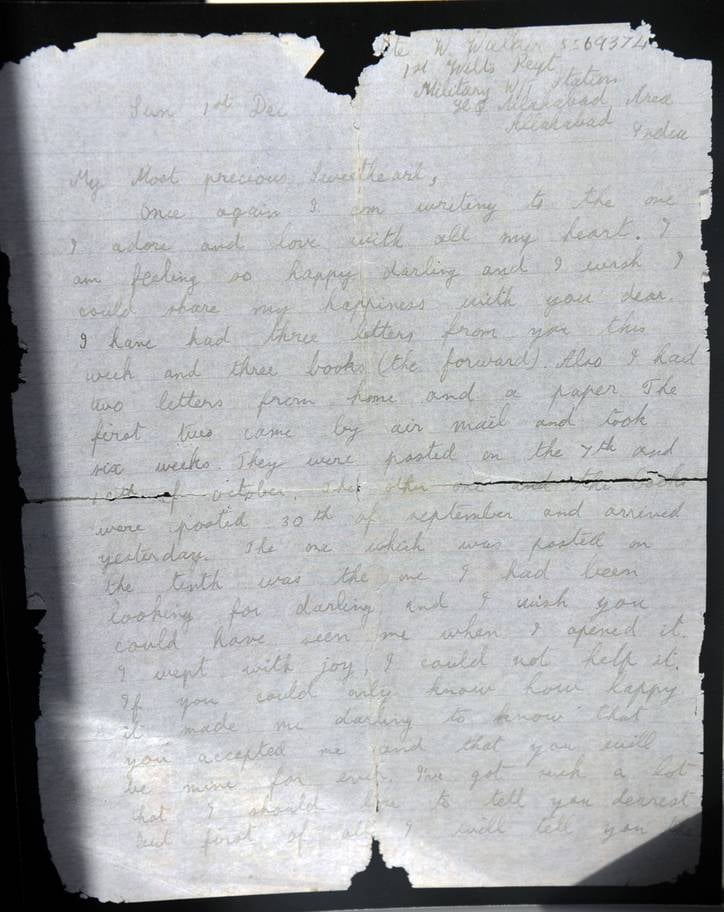 Pte W. Walker 5569374
1st Wilts Regt
Military W/T Station
Allahabad Area
Allahabad
India
Sun 1st Dec
My Most precious Sweetheart,
Once again I am writing to the one
I adore and love with all my heart. I
am feeling so happy darling and I wish I
could share my happiness with you dear.
I have had three letters from you this
week and three books (the forward). Also I had
two letters from home and a paper The
first two came by air mail and took
six weeks. They were posted on the 7th and
10th of October. The other one and the books
were posted 30th of september and arrived
yesterday. The one which was posted on
the tenth was the one I had been
looking for darling, and I wish you
could have seen me when I opened it.
I wept with joy, I could not help it.
If you could only know how happy
it made me darling to know that
you accepted me and that you will
be mine for ever. I've got such a lot
that I should like to tell you dearest
but first of all I will tell you the